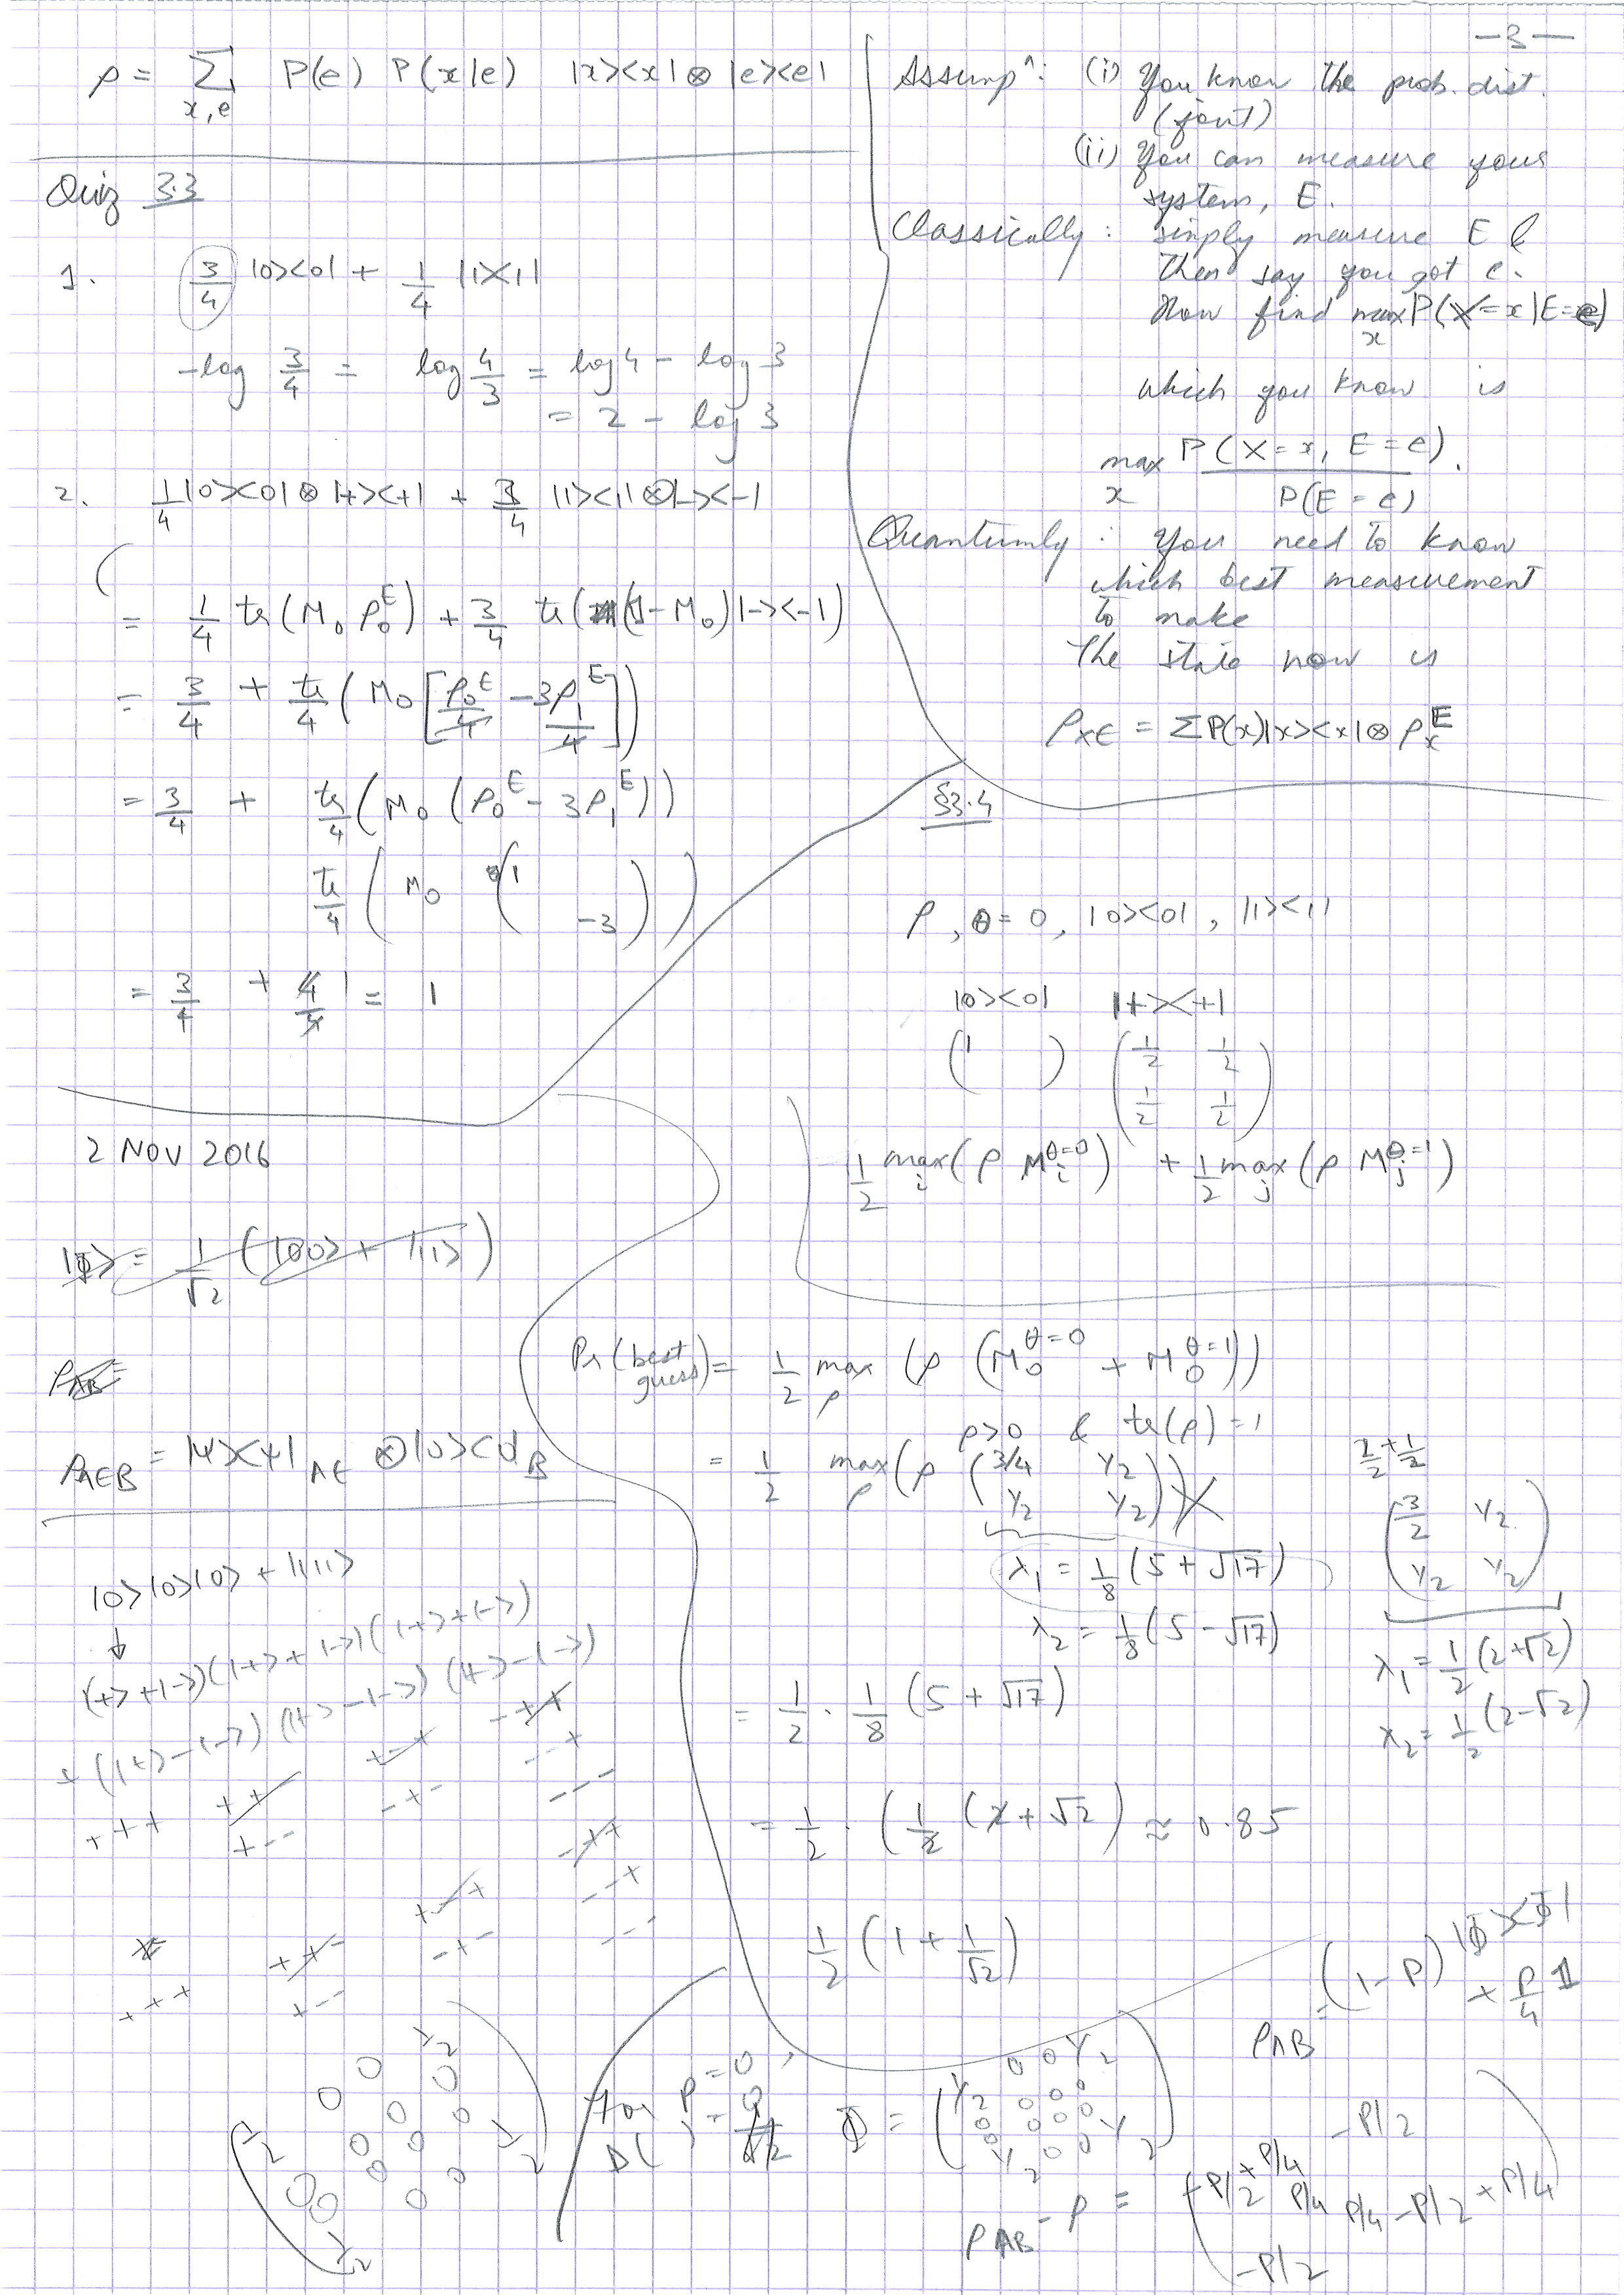 —3—
ρ = Σ P(e) P(x|e) |x><x| ⊗ |e><e|
x,e
Quiz 3.3
1. 3/4 |0><0| + 1/4 |1><1|
-log 3/4 = log 4/3 = log 4 - log 3
= 2 - log 3
2. 1/4 |0><0| ⊗ |+><+| + 3/4 |1><1| ⊗ |-><-|
= 1/4 tr(M₀ ρ₀ᴱ) + 3/4 tr((1-M₀)|-><-|)
= 3/4 + tr/4 (M₀ [ρ₀ᴱ/4 - 3ρ₁ᴱ/4])
= 3/4 + tr/4 (M₀ (ρ₀ᴱ - 3ρ₁ᴱ))
tr/4 (M₀ (1 -3))
= 3/4 + 1/4 = 1
Assumpⁿ: (i) You know the prob. dist.
(joint)
(ii) You can measure your
system, E.
Classically: simply measure E &
then say you got e.
Now find max P(X=x|E=e)
x
which you know is
max P(X=x, E=e).
x P(E=e)
Quantumly : You need to know
which best measurement
to make
The state now is
ρXE = Σ P(x)|x><x| ⊗ ρxᴱ
§3.4
ρ, θ=0, |0><0|, |1><1|
|0><0| |+><+|
(1 ) (1/2 1/2
1/2 1/2)
1/2 max(ρ Mᵢ^θ=0) + 1/2 max(ρ Mⱼ^θ=1)
i j
2 NOV 2016
|Φ> = 1/√2 (|00> + |11>)
ρAB =
ρAEB = |ψ><ψ|AE ⊗ |0><0|B
|0>|0>|0> + |111>
↓
(|+>+|->)(|+>+|->)(|+>+|->)
+ (|+>-|->)(|+>-|->)(|+>-|->)
+++ ++- +-+ -++
+-- -+- --+ ---
+++ ++- +-+ -++
+-- -+- --+ ---
Pr(best guess) = 1/2 max (ρ (M₀^θ=0 + M₀^θ=1))
ρ
ρ>0 & tr(ρ)=1
= 1/2 max (ρ (3/4 1/2
ρ 1/2 1/2)) X
λ₁ = 1/8 (5+√17)
λ₂ = 1/8 (5-√17)
2/2 + 1/2
(3/2 1/2
1/2 1/2)
λ₁ = 1/2 (2+√2)
λ₂ = 1/2 (2-√2)
= 1/2 · 1/8 (5+√17)
= 1/2 · (1/2 (2+√2) ≈ 0.85
1/2 (1 + 1/√2)
ρAB = (1-P) |Φ><Φ| + P/4 𝟙
(1/2 0 0 1/2
0 0 0 0
0 0 0 0
1/2 0 0 1/2)
for P=0,
D( ) = 0
Φ = (1/2 0 0 1/2
0 0 0 0
0 0 0 0
1/2 0 0 1/2)
ρAB - ρ = (-P/2+P/4 -P/2
P/4 P/4
-P/2 -P/2+P/4)